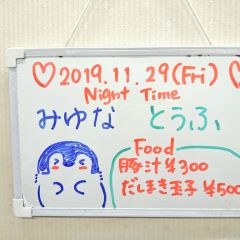 ♡2019.11.29(Fri)♡
Night Time
みゆな とうふ
Food
豚汁 ¥300
だしまき玉子 ¥500
つく